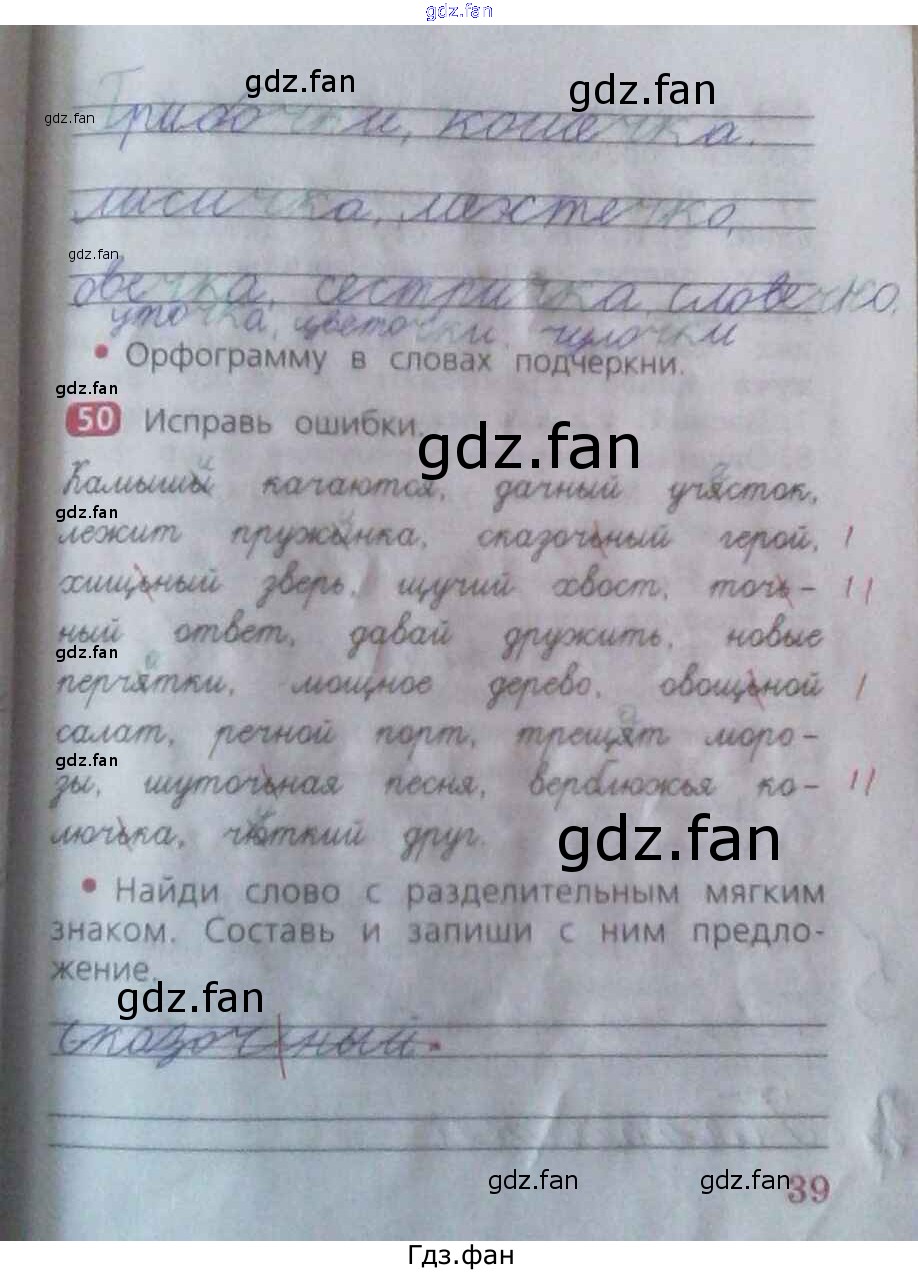 gdz.fan
gdz.fan
gdz.fan
gdz.fan
Грибочки, кошечка,
лисичка, ленточка,
gdz.fan
овечка, сестричка, словечко,
уточка, цветочки, чулочки
• Орфограмму в словах подчеркни.
gdz.fan
50 Исправь ошибки.
gdz.fan
Камышы качаются, дачный учясток,
и а
gdz.fan
лежит пружынка, сказочьный герой,
и
хищьный зверь, щучий хвост, точь-
ный ответ, давай дружить, новые
gdz.fan
перчятки, мощное дерево, овощьной
а
салат, речной порт, трещят моро-
а
gdz.fan
зы, шуточьная песня, верблюжья ко-
лючька, чюткий друг.
gdz.fan
• Найди слово с разделительным мягким
знаком. Составь и запиши с ним предло-
жение.
gdz.fan
Сказочный.
gdz.fan
gdz.fan
39
Гдз.фан